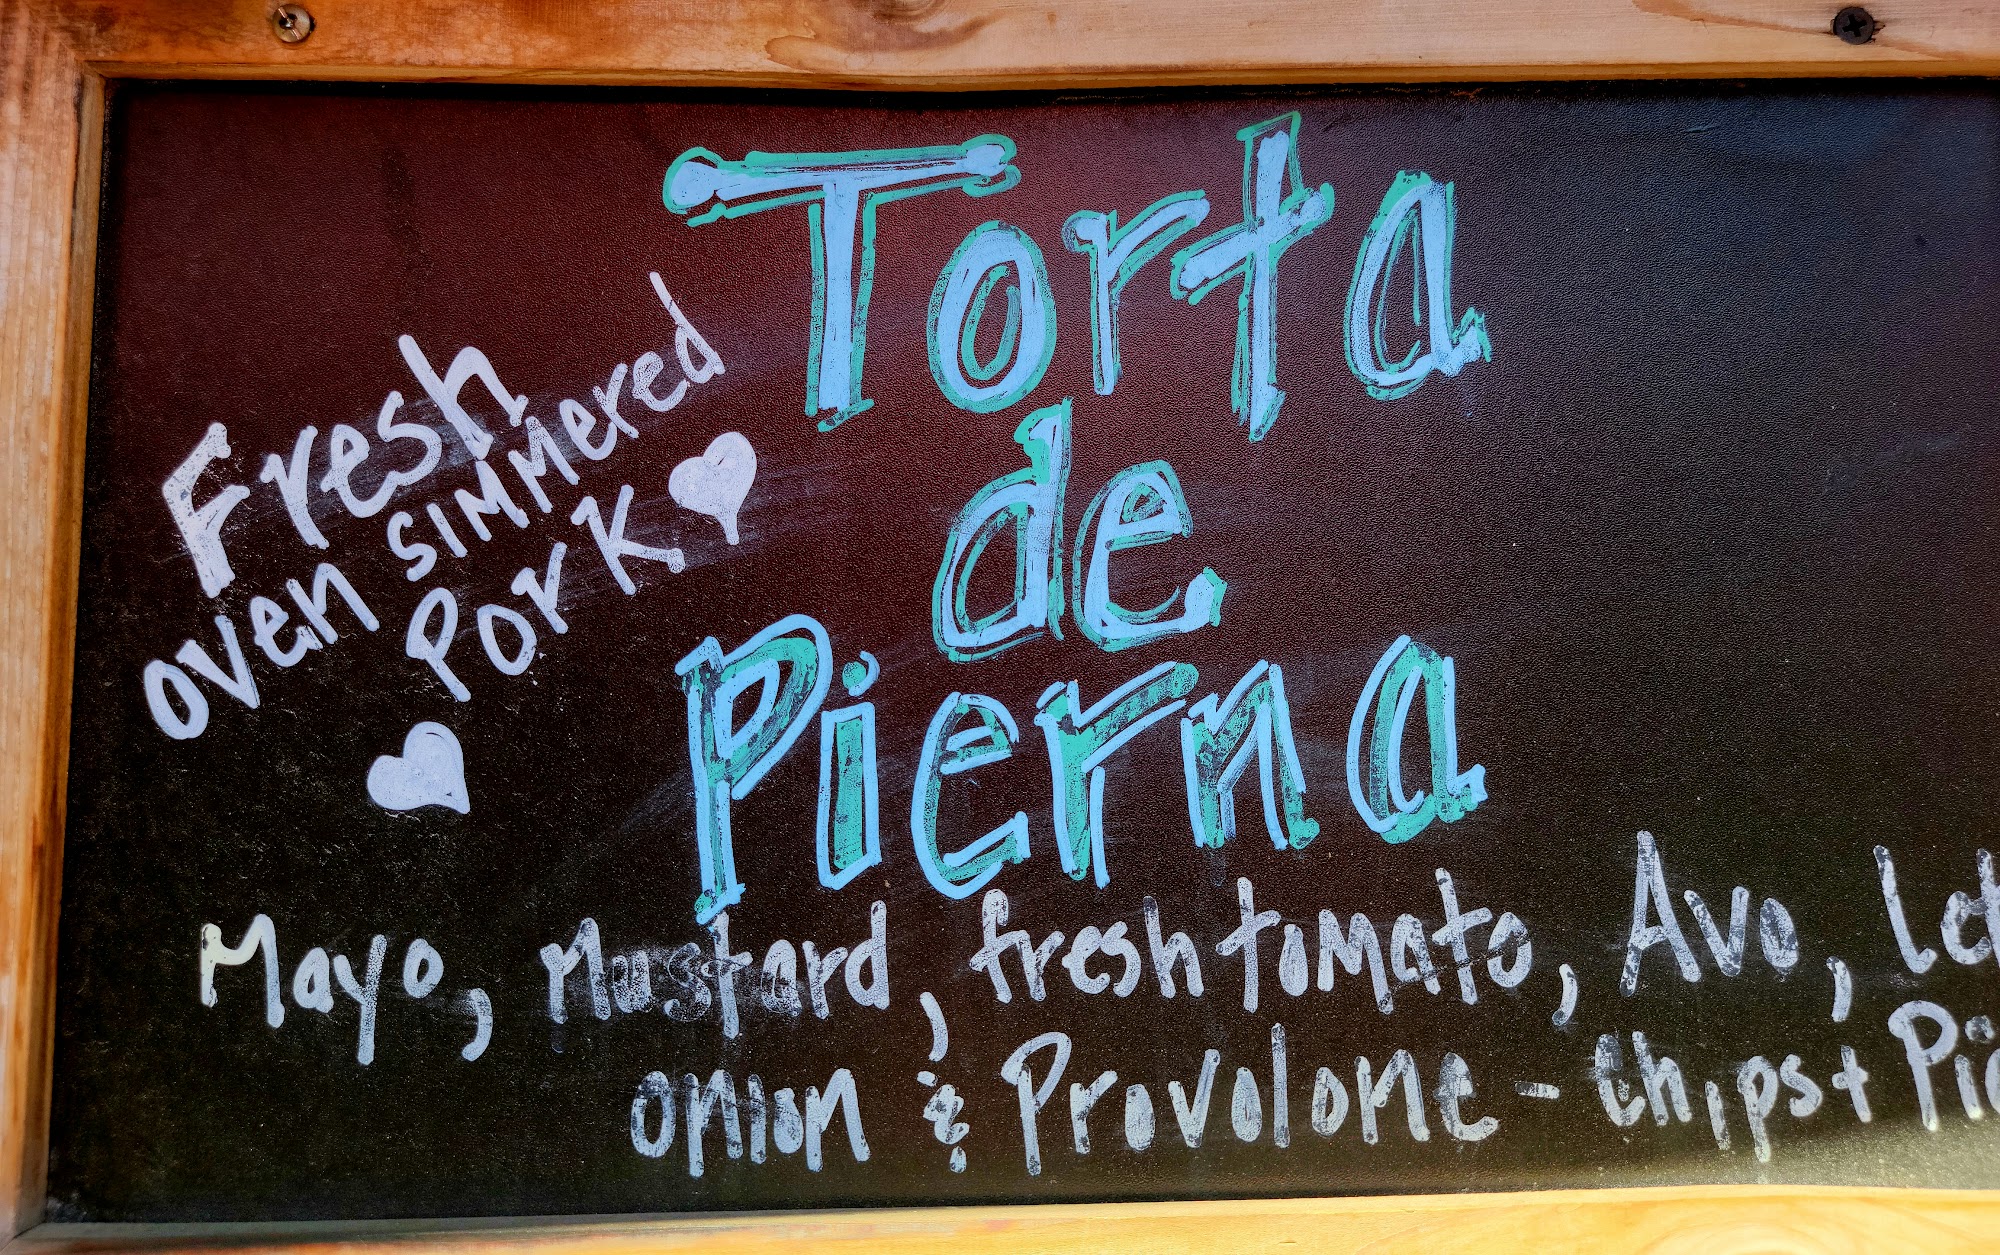 Torta
de
Pierna
Fresh
oven simmered
Pork
Mayo, Mustard, fresh tomato, Avo,
onion & Provolone - chips +